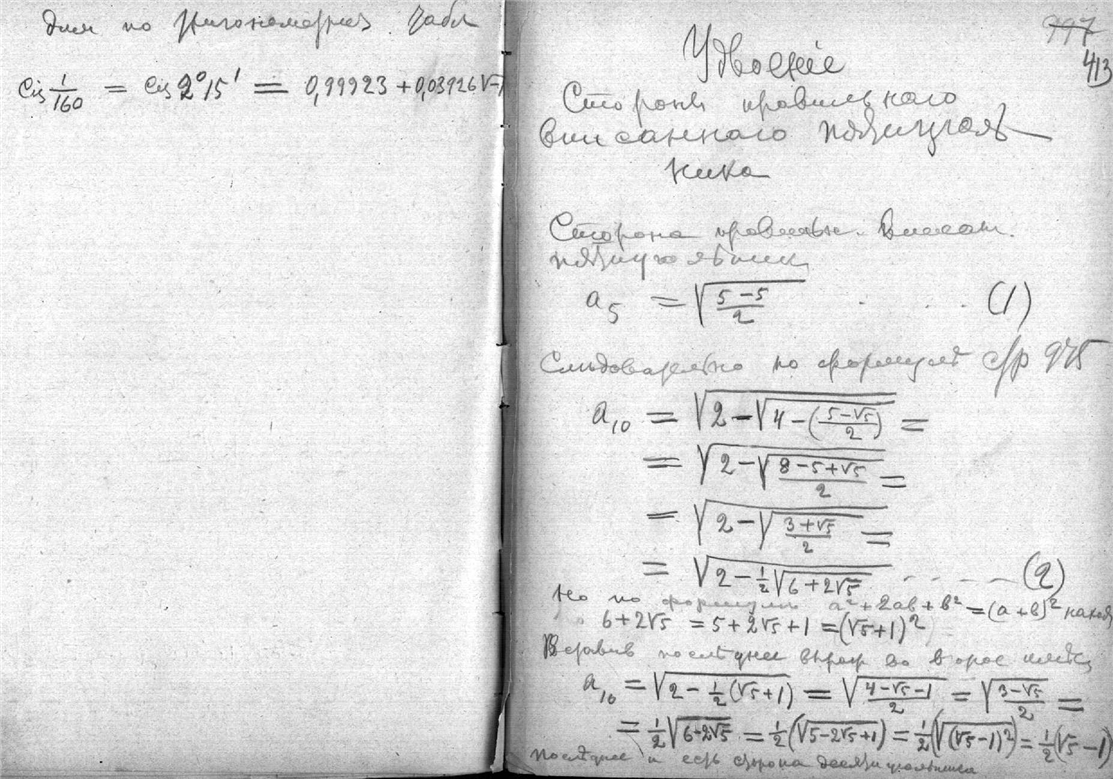 дим по тригонометрич. табл
Cis 1/160 = Cis 2°15' = 0,99923 + 0,03926√-1
997
413
Удвоение
Стороны правильнаго
вписаннаго пятиуголь-
ника
Сторона правильн. вписан.
пятиугольник
a₅ = √((5-5)/2) . . . . (1)
Следовательно по формуле стр 975
a₁₀ = √(2-√(4-((5-√5)/2))) =
= √(2-√((8-5+√5)/2)) =
= √(2-√((3+√5)/2)) =
= √(2-½√(6+2√5)) - - - - - (2)
Но по формуле a²+2ab+b² = (a+b)²
6+2√5 = 5+2√5+1 = (√5+1)²
последнее во второе
a₁₀ = √(2-½(√5+1)) = √((4-√5-1)/2) = √((3-√5)/2) =
= ½√(6-2√5) = ½(√(5-2√5+1)) = ½(√((√5-1)²)) = ½(√5-1)
последнее и есть сторона десятиугольника